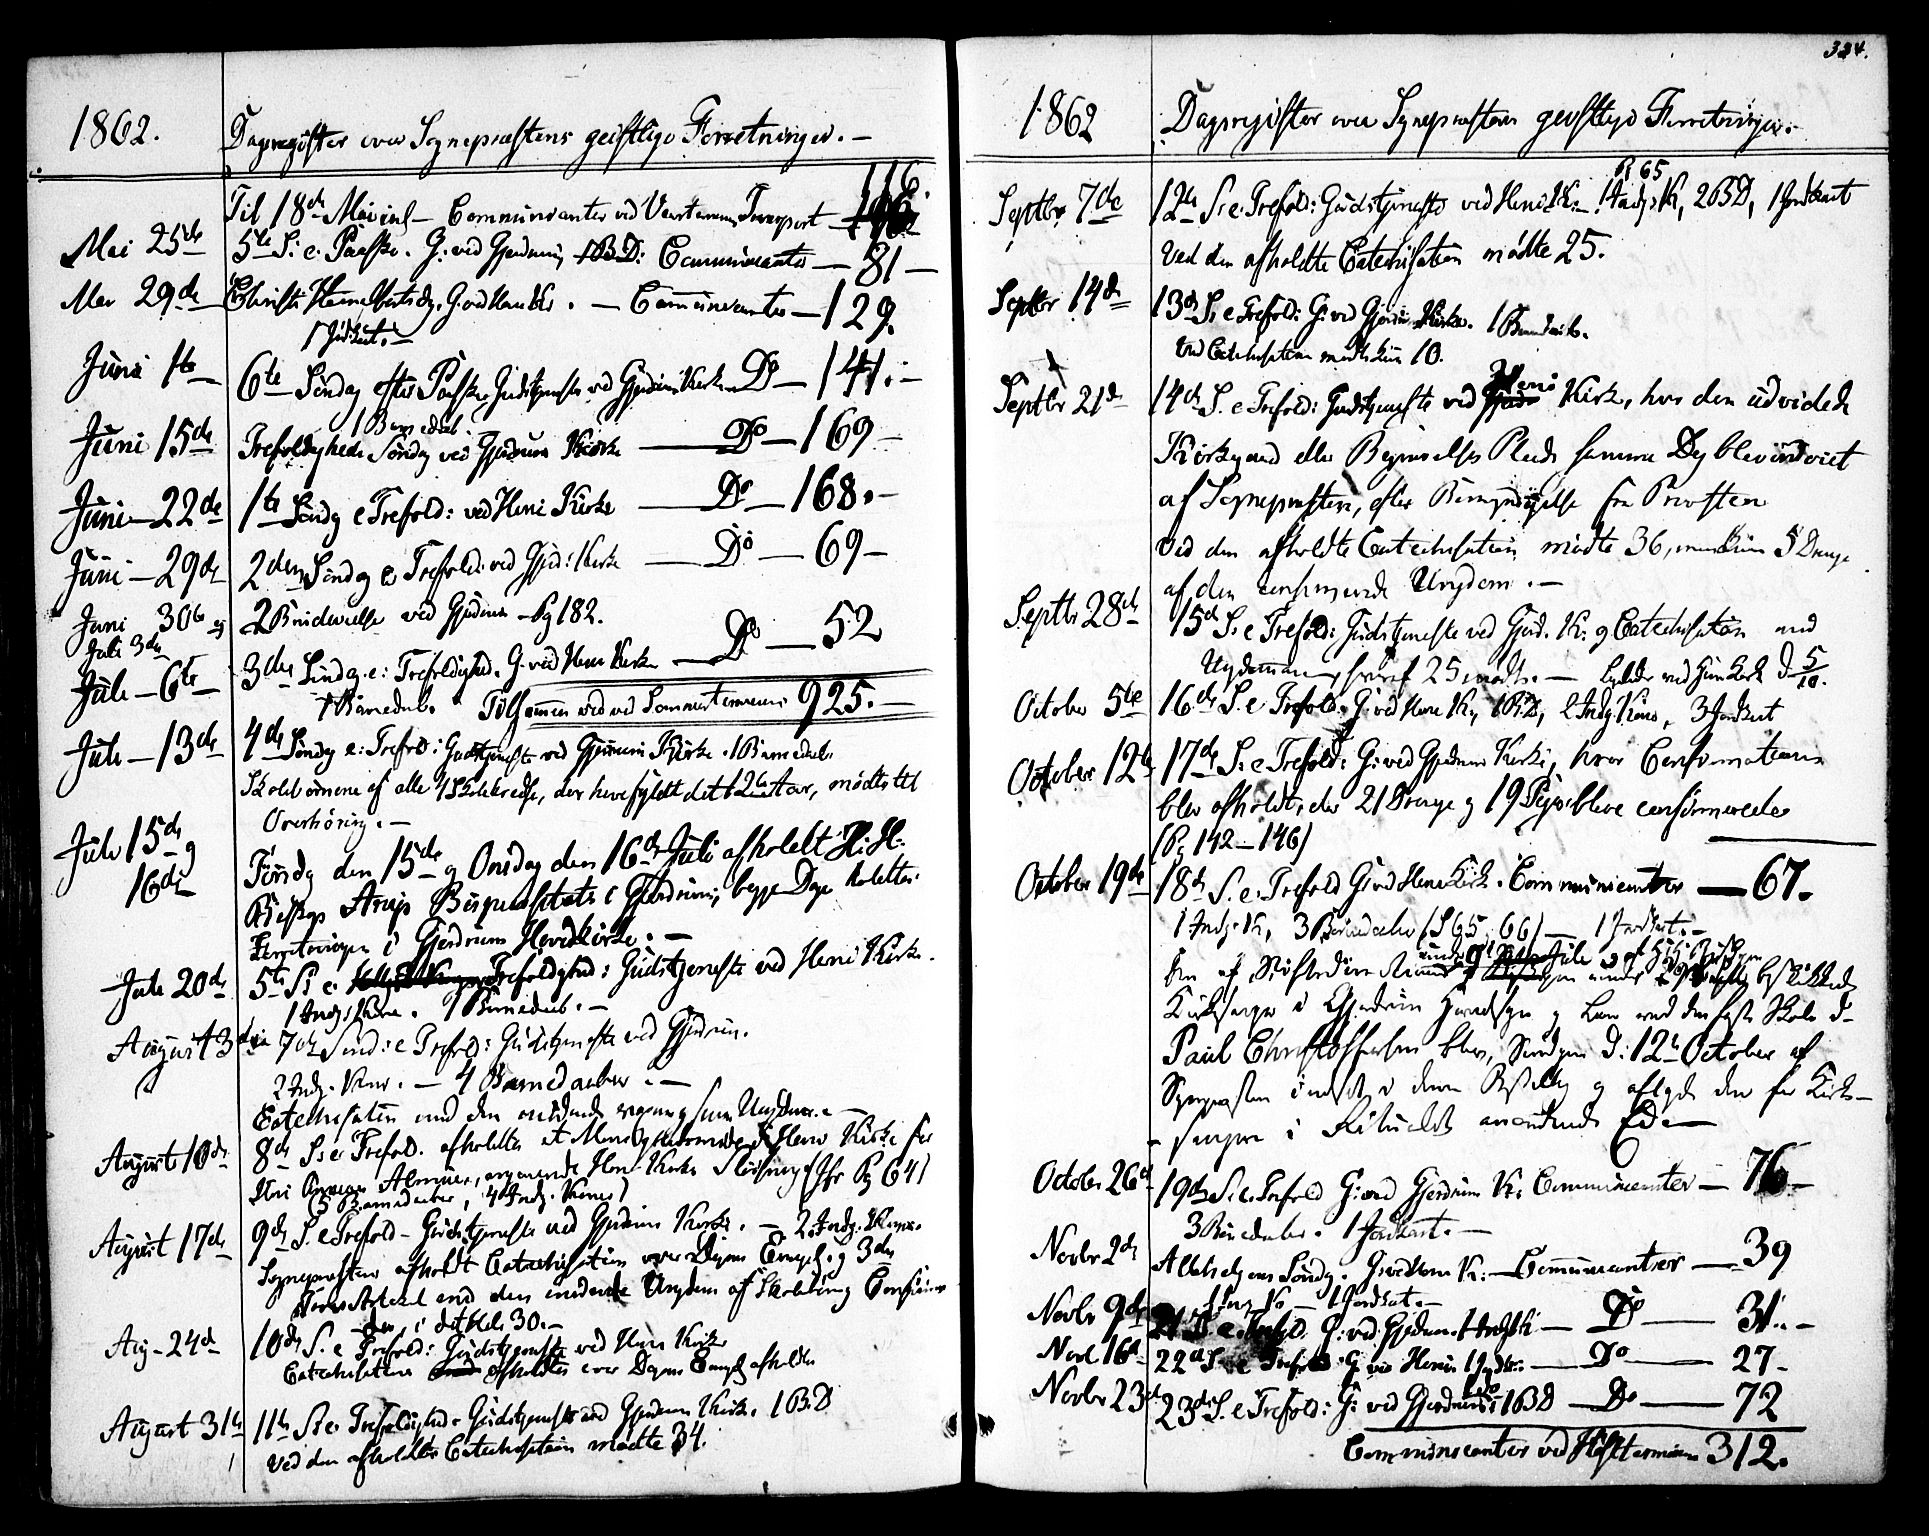 1862.
Dagregister over Sognepræstens geistlige Forretninger. —
Til 18de Mai incl — Communicanter ved Vaarterminen Transport — 116.
Mai 25de 5te S: e: Paaske. G: ved Gjerdrum, 1 B.D: Communicanter — 81 —
Mai 29de Christi Himmelfartsdg. G. ved Heni K: . — Communicanter — 129.
1 Jordkast. —
Juni 1te 6te Søndag efter Paaske. Gudstjeneste ved Gjerdrum Kirke Do — 141. —
1 Barnedaab
Juni 15de Trefoldigheds Søndag ved Gjerdrum Kirke — Do — 169 —
Juni — 22de 1te Søndg e Trefold: ved Heni Kirke — Do — 168. —
Juni — 29de 2den Søndag e Trefold: ved Gjerd: Kirke — Do — 69 —
Juni 30te og 2 Brudevielse ved Gjerdrum — Pg 182.
Juli 3die
Juli — 6te — 3die Søndag. e: Trefoldighed. G. ved Heni Kirke — Do — 52
1 Barnedaab. Tilsammen ved Sommerterminen 925. —
Juli — 13de 4de Søndag e: Trefold: Gudstjeneste ved Gjerdrum Kirke. 1 Barnedaab.
Skolebørnene af alle 4 Skolekredse, der have fyldt det 12te Aar, mødte til
Overhøring. —
Juli 15de og
16de Tirsdg den 15de og Onsdag den 16de Juli afholdt H: H:
Biskop Arup Bispevisitats i Gjerdrum, begge Dage holdtes
Forretningen i Gjerdrums Hovedkirke. —
Juli 20de 5te S: e: Trefoldighed: Gudstjeneste ved Heni Kirke.
1 Indg: Kone. 1 Barnedaab. —
August 3die 7de Sønd: e Trefold: Gudstjeneste ved Gjerdrum.
2 Indg. Koner. — 4 Barnedaaber. —
Catechisation med den mødende Ungdom. —
August 10de 8de S: e: Trefold. afholdtes et Møde i Heni Kirke for
Heni Almue, angaaende Heni Kirkes (Jfr Pg 64)
(5 Barnedaaber, 4 Indg. Koner)
August 17de 9de S. e Trefold — Gudstjeneste ved Gjerdrum Kirke. — 2 Indg. Koner.
Sognepræsten afholdt Catechisation over Dagens Evangel. og 3die
Troes Artikel med den mødende Ungdom af Skolebørn og Confirmer-
der, i det hele 30. —
Aug — 24de 10de S. e Trefold: Gudstjeneste ved Heni Kirke
Catechisation over Dagens Evangl afholdtes
August 31te 11te S: e: Trefoldighed. Gudstjeneste ved Gjerdrum Kirke. 1 B:D
Ved den afholdte Catechisation mødte 34.
334.
1862
Dagregister over Sognepræstens geistlige Forretninger. —
Pg 65
Septbr 7de 12te S: e. Trefold: Gudstjeneste ved Heni K: — 1 Indg: K, 2 B D, 1 Jordkast
Ved den afholdte Catechisation mødte 25.
Septbr 14de 13de S: e Trefold: G: ved Gjerdrum Kirke. 1 Barnedaab.
Ved Catechisation mødte kun 10.
Septbr 21de 14de S. e Trefold: Gudstjeneste ved Heni Kirke, hvor den udvidede
Kirkegaard eller Begravelses Plads samme Dag blev indviet
af Sognepræsten, efter Bemyndigelse fra Provsten
Ved den afholdte Catechisation mødte 36, men kun 5 Drenge
af den confirmerede Ungdom. —
Septbr 28de 15de S: e Trefold: Gudstjeneste ved Gjerd. K: og Catechisation med
Ungdommen, hvoraf 25 mødte. — 5/10.
October 5te 16de S. e Trefold. G: ved Heni K:, 1 B:D, 2 Indg. Koner, 3 Jordkast
October 12te 17de S: e Trefold: G: ved Gjerdrum Kirke, hvor Confirmationen
blev afholdt, der 21 Drenge og 19 Piger bleve confirmerede
(Pg 142 — 146)
October 19de 18de S. e. Trefold G: ved Heni Kirke. Communicanter — 67.
1 Indg. K, 3 Barnedaaber (S 65, 66) — 1 Jordkast. —
Den af Stiftsdirectionen under Juli beskikkede
Kirkesanger i Gjerdrum Hovedsogn og Lærer ved den faste Skole
Paul Christophersen blev, Søndagen d: 12te October af
Sognepræsten indsat i denne Bestilling og aflagde den for Kirke-
sangere i Ritualet anordnede Ed. —
October 26de 19de S: e. Trefold G: ved Gjerdrum K: Communicanter — 76 —
3 Barnedaaber. 1 Jordkast. —
Novbr 2de Allehelgens Søndg. G: ved Heni K: — Communicanter — 39
1 Indg. Ko — 1 Jordkast. —
Novbr 9de 21 S. e. Trefold. G: ved Gjerdrum 1 Indg K — Do — 31. —
Novb 16de 22de S. e Trefold G ved Heni 1 Jordk. — Do — 27 —
Novbr 23de 23de S. e Trefold: G: ved Gjerdrum 1 B D — Do — 72
Communicanter ved Høstterminen 312.